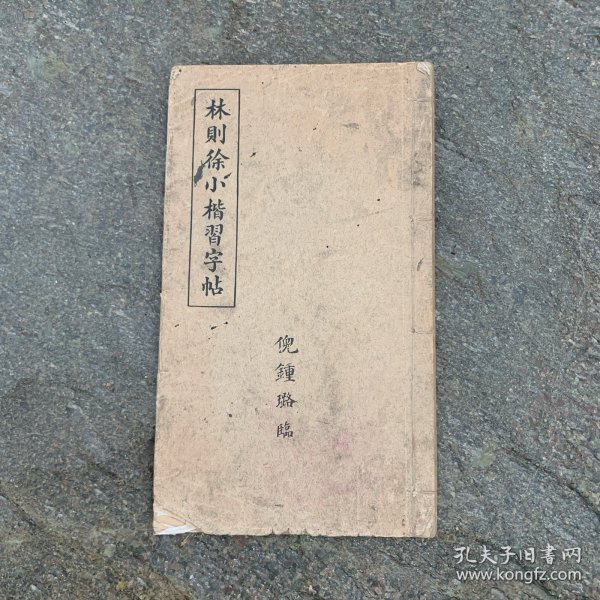 林則徐小楷習字帖
倪鍾璐臨
孔夫子旧書网
www.kongfz.com